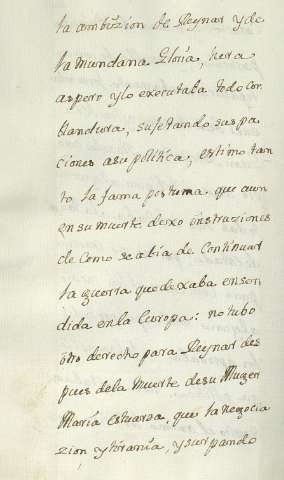 la ambizion de Reynar y de
la Mundana Gloria, hera
aspero y lo executaba todo con
blandura, sujetando sus pa
ciones a su politica, estimo tan
to la fama postuma que aun
en su muerte dexo instruziones
de como se abia de Continuar
la guerra que dexaba ensen
dida en la Europa: no tubo
otro derecho para Reynar des
pues de la Muerte de su Muger
Maria estuarda, que la negocia
zion, y tirania, y surpando